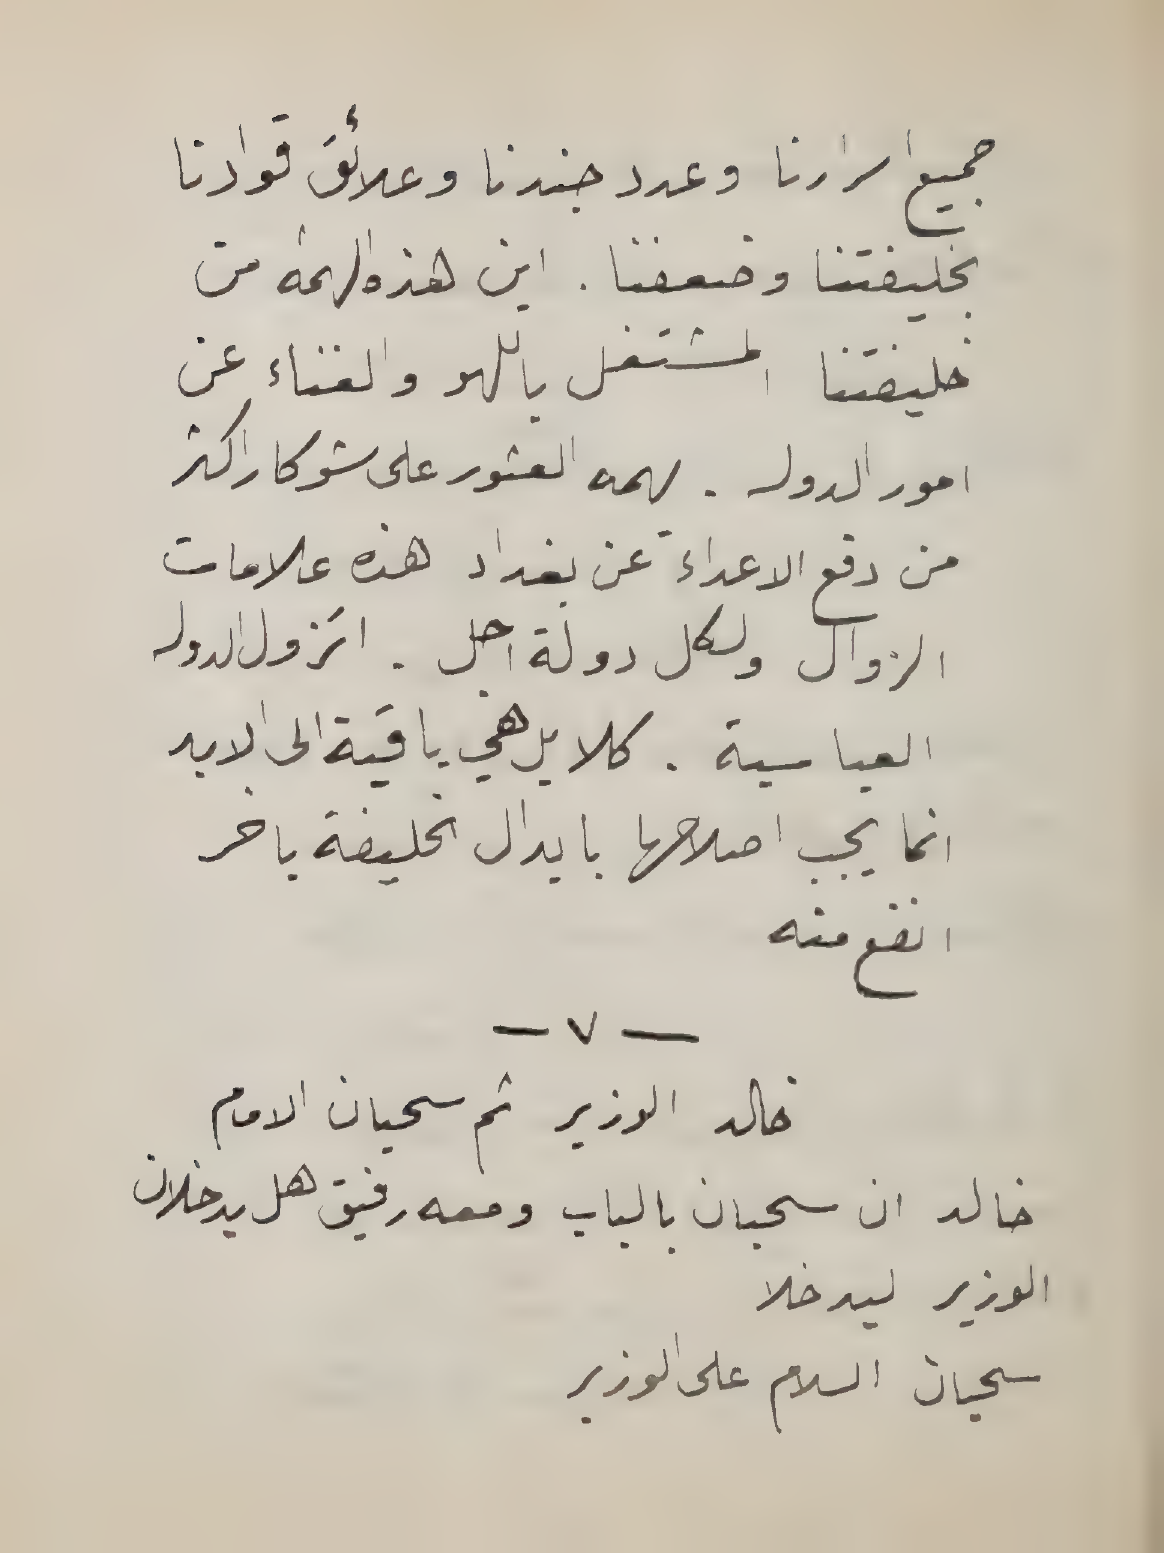 جميع اسرارنا وعدد جندنا وعلائق قوادنا
بخليفتنا وضعفنا . اين هذه الهمة من
خليفتنا المشتغل باللهو والغناء عن
امور الدوله . يهمه العثور على شوكار اكثر
من دفع الاعداء عن بغداد هذه علامات
الزوال ولكل دولة اجل . اتزول الدوله
العباسية . كلا بل هي باقية الى الابد
انما يجب اصلاحها بابدال الخليفة باخر
انفع منه
— ٧ —
خالد الوزير ثم سحبان الامام
خالد ان سحبان بالباب ومعه رفيق هل يدخلان
الوزير ليدخلا
سحبان السلام على الوزير